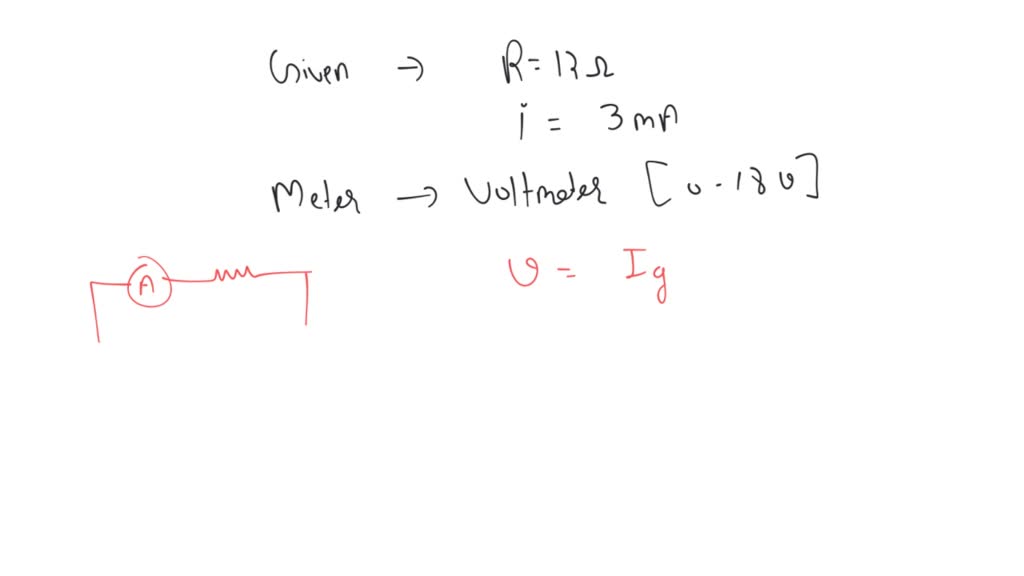 Given → R = 12 Ω
i = 3 mA
Meter → Voltmeter [0 - 18 v]
A
v = Ig